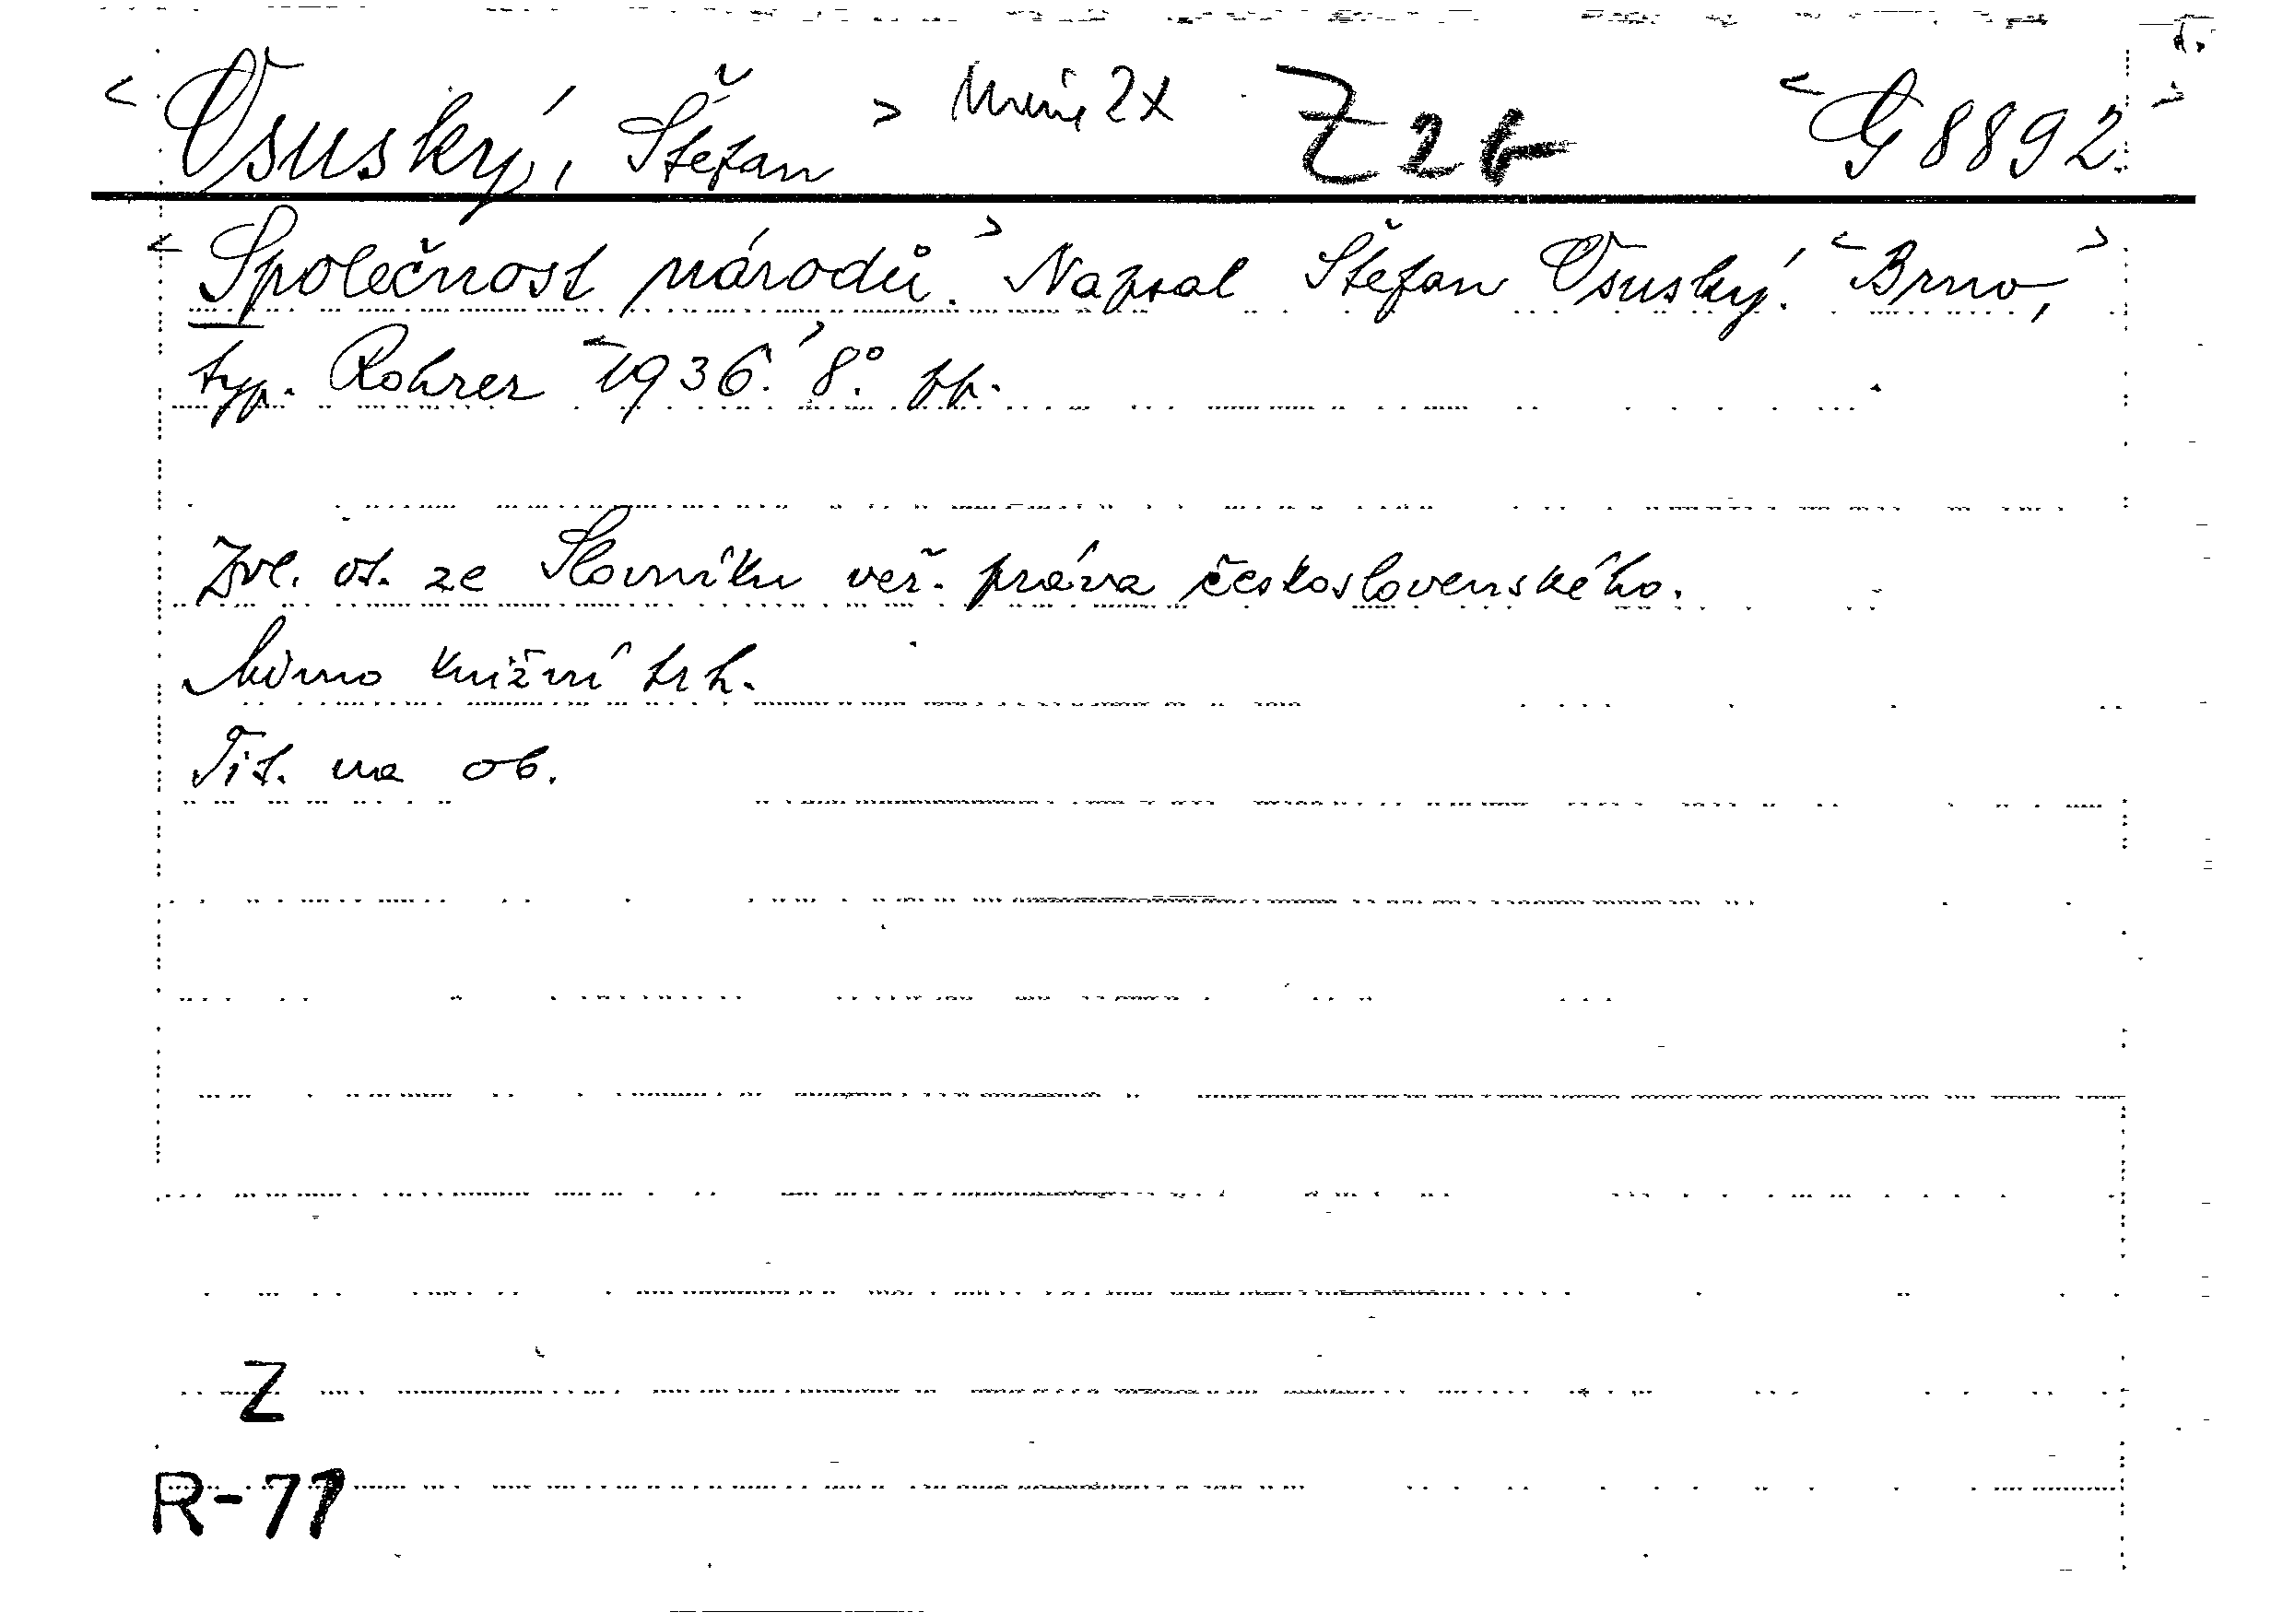 < Osuský, Štefan > 2x Z 26 < G 8892 >
< Společnost národů. > Napsal Štefan Osuský. < Brno, >
typ. Rohrer < 1936. > 8°.
Zvl. ot. ze Slovníku veř. práva československého.
Mimo knižní trh.
Tit. na ob.
Z
R-77